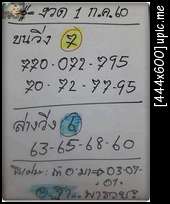 งวด 1 ก.ค. 60
บนวิ่ง 7
770-072-795
70-72-77-95
ล่างวิ่ง 6
63-65-68-60
03-07-
01-
[444x600] upic.me